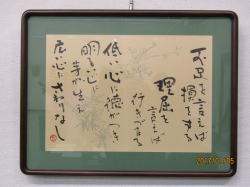 不足を言えば
損をする
理屈を
言えば
行きづまる
低い心に徳がつき
明るい心に
芽が生え
広い心にさわりなし
2007/01/05